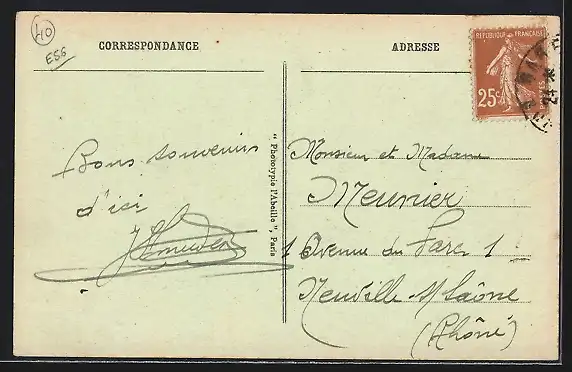 40
ESS
CORRESPONDANCE
ADRESSE
REPUBLIQUE FRANÇAISE
25c
POSTES
24
Bons souvenirs
d'ici
"Phototypie l'Abeille", Paris
Monsieur et Madame
Meunier
1 Avenue du Parc 1
Neuville s/ Saône
(Rhône)